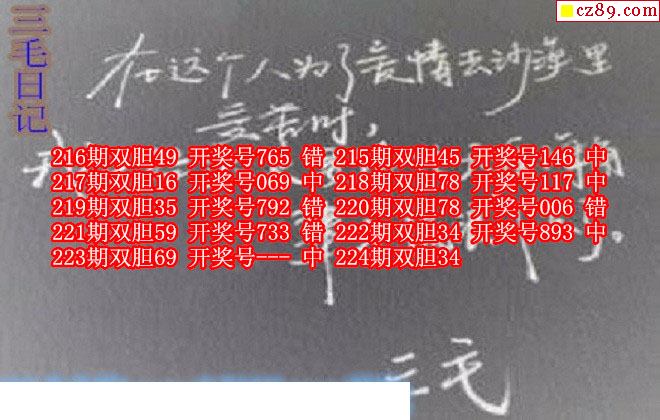 cz89.com
三毛日记
在这个人为了爱情去沙漠里
受苦时，
216期双胆49 开奖号765 错 215期双胆45 开奖号146 中
217期双胆16 开奖号069 中 218期双胆78 开奖号117 中
219期双胆35 开奖号792 错 220期双胆78 开奖号006 错
221期双胆59 开奖号733 错 222期双胆34 开奖号893 中
223期双胆69 开奖号--- 中 224期双胆34
三毛